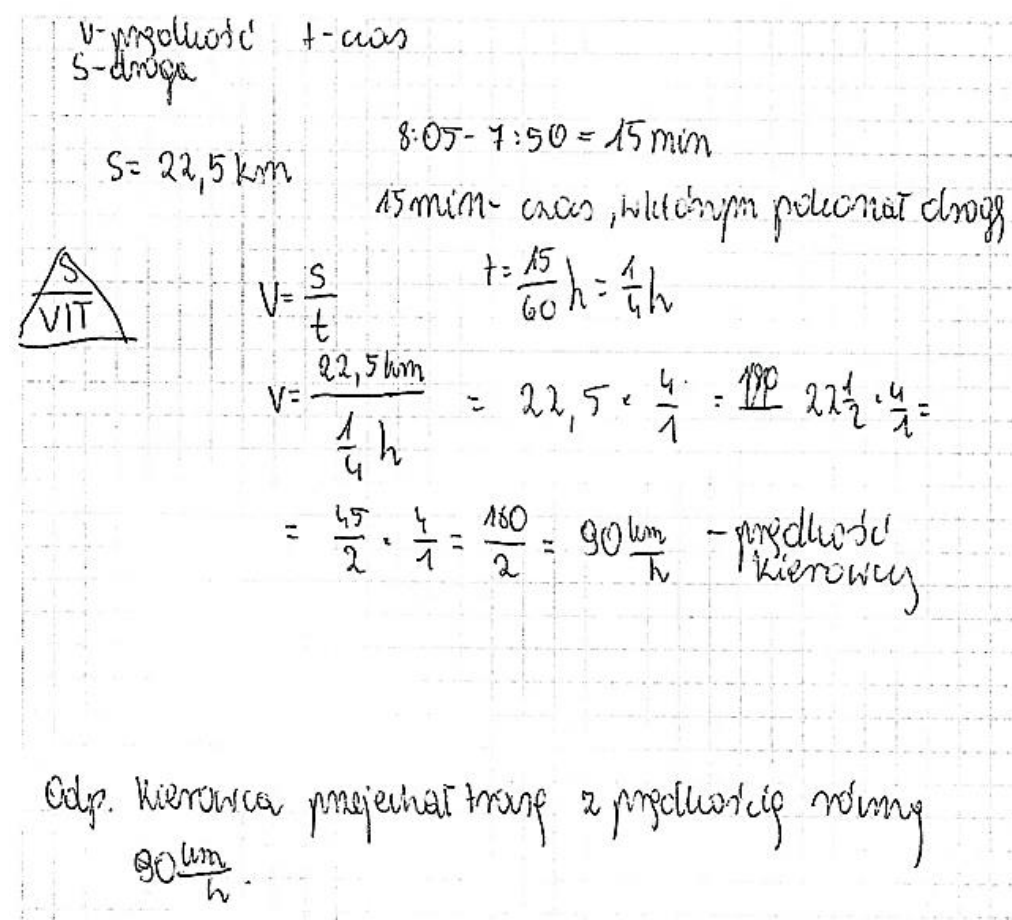 v-prędkość t-czas
s-droga
8:05-7:50 = 15 min
S= 22,5 km
15 min- czas, w którym pokonał drogę
S
VIT
V= s/t
t= 15/60 h = 1/4 h
V= 22,5 km / 1/4 h = 22,5 · 4/1 = 22 1/2 · 4/1 =
= 45/2 · 4/1 = 180/2 = 90 km/h - prędkość
kierowcy
Odp. Kierowca przejechał trasę z prędkością równą
90 km/h.